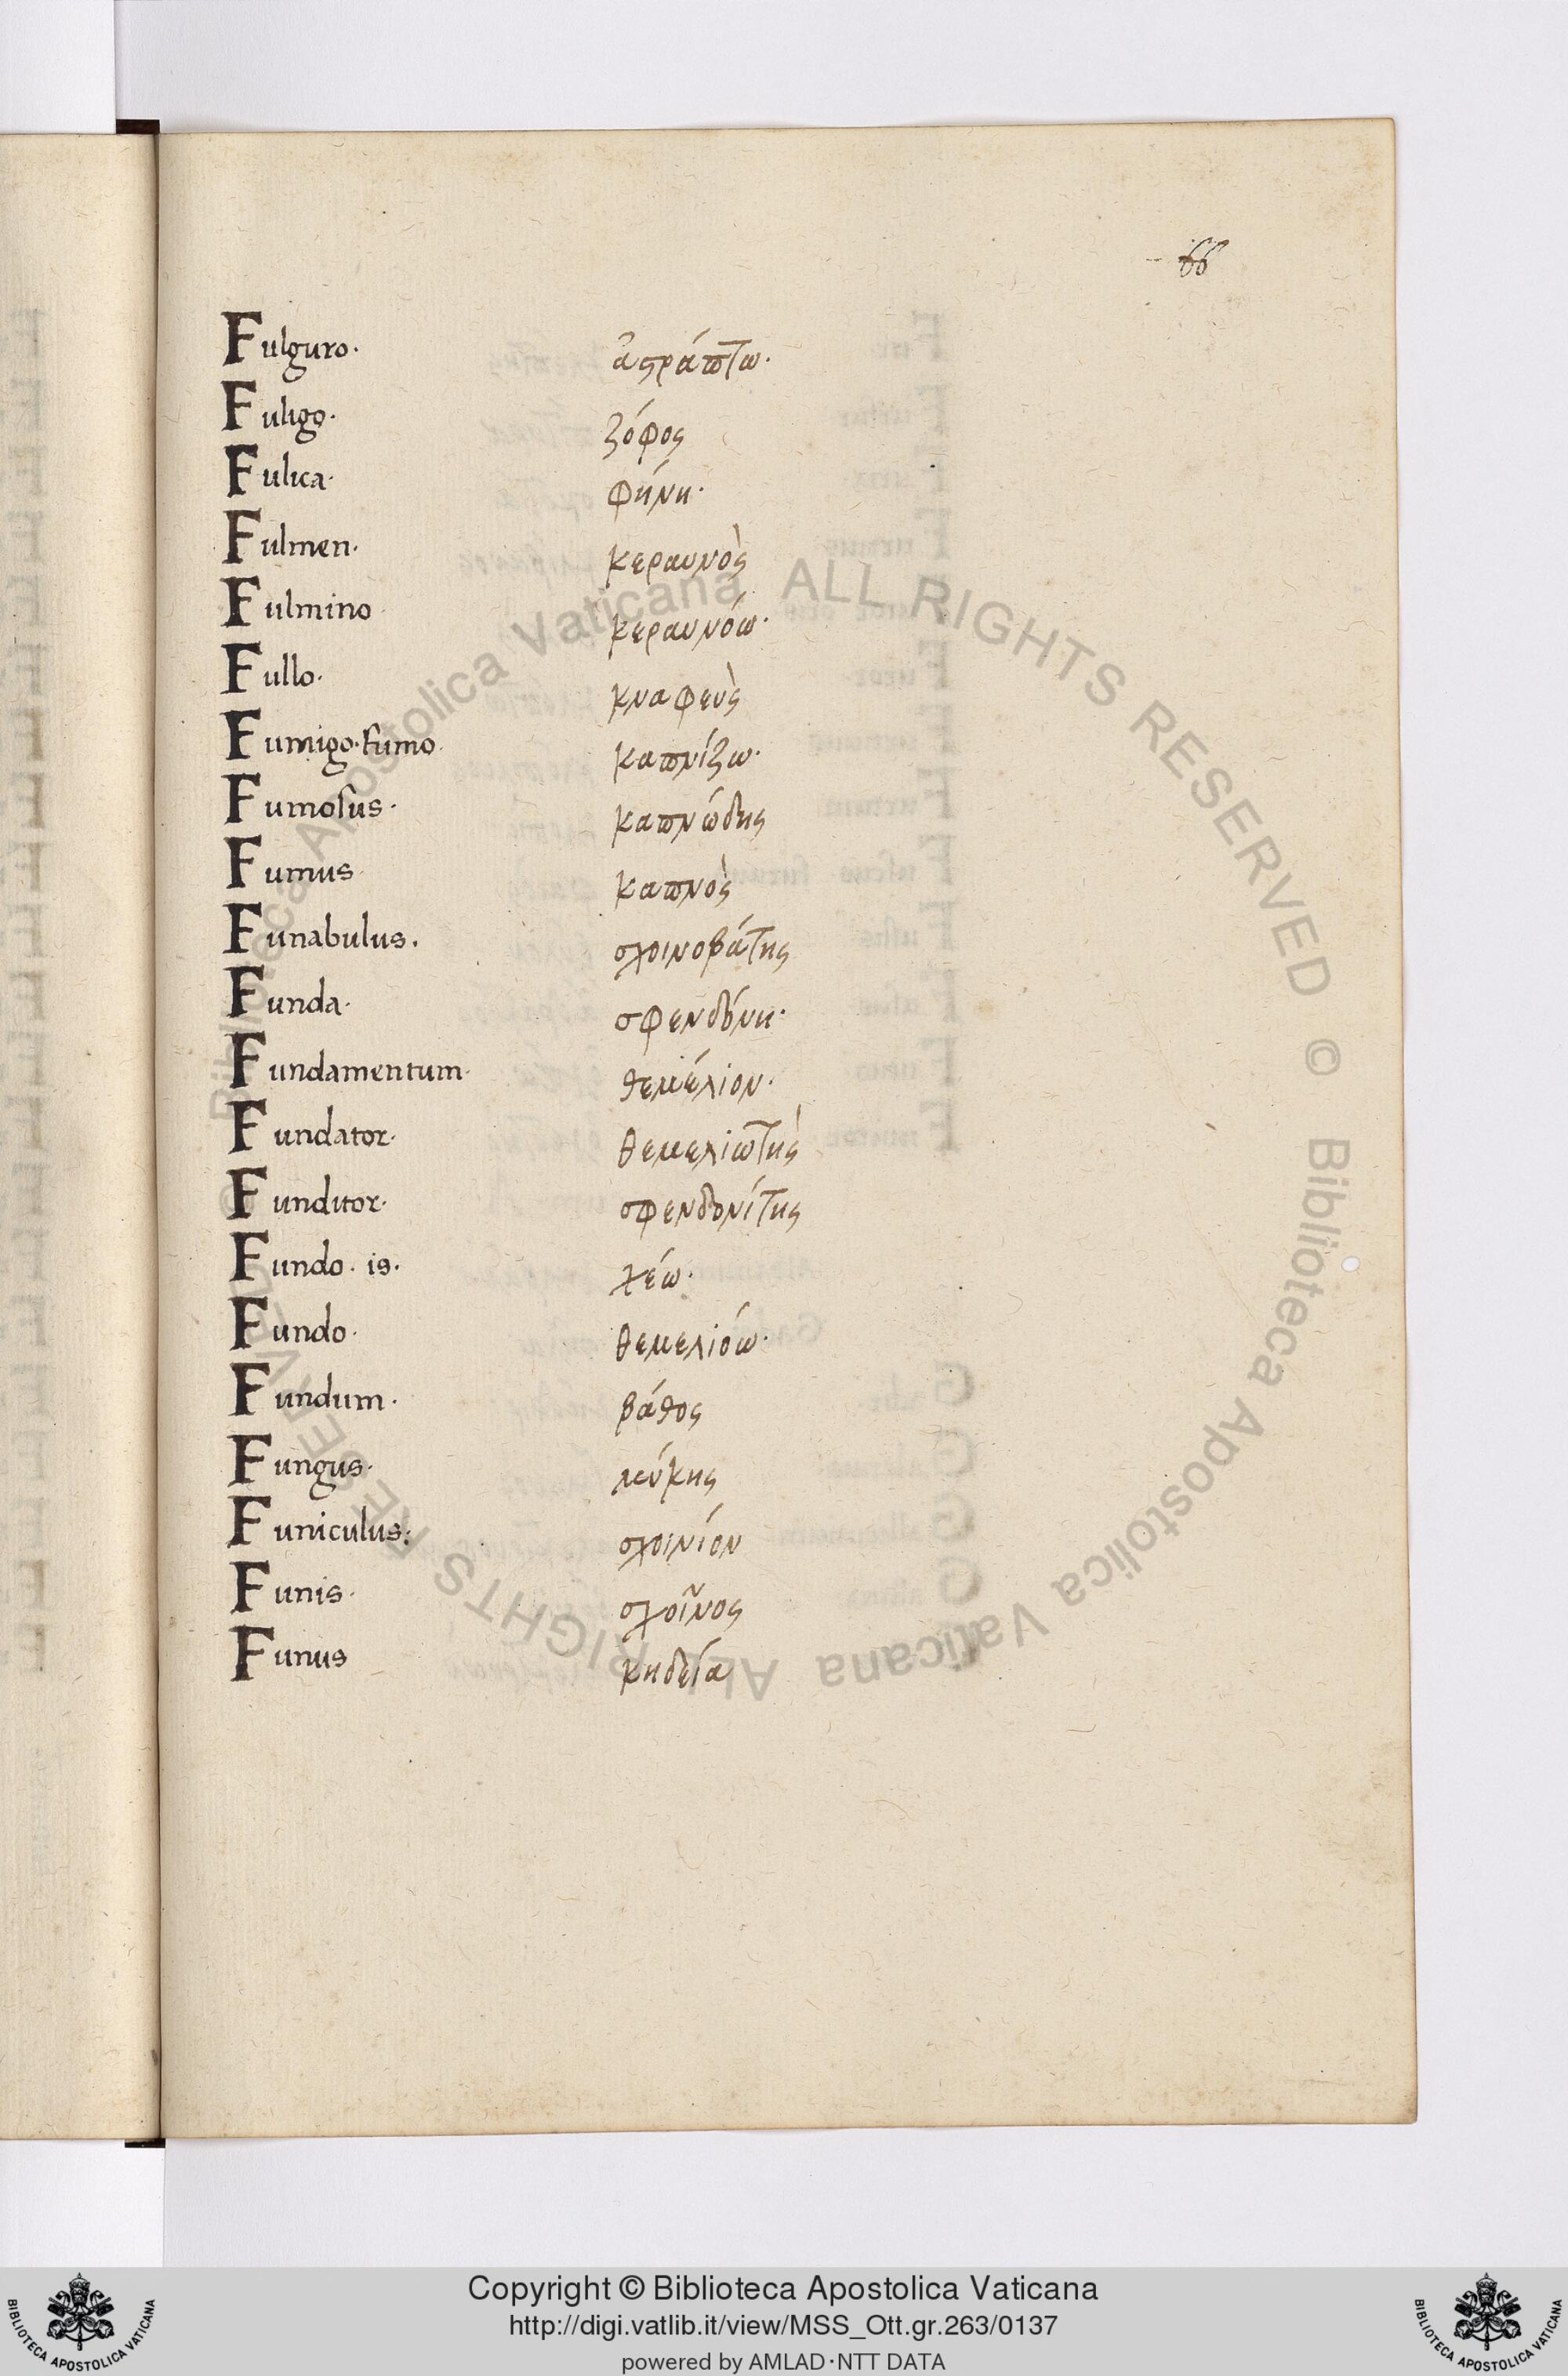 66
Fulguro· ἀςράπτω·
Fuligo· ζόφος
Fulica· φήνη·
Fulmen· κεραυνὸς
Fulmino κεραυνόω·
Fullo· κναφεὺς
Fumigo·fumo· καπνίζω·
Fumoſus· καπνώδης
Fumus καπνὸς
Funabulus. σχοινοβάτης
Funda· σφενδόνη·
Fundamentum· θεμέλιον·
Fundator· θεμελιωτὴς
Funditor· σφενδονίτης
Fundo· is· χέω·
Fundo· θεμελιόω·
Fundum· βάθος
Fungus· μύκης
Funiculus: σχοινίον
Funis· σχοῖνος
Funus κηδεία
Biblioteca Apostolica Vaticana ALL RIGHTS RESERVED © Biblioteca Apostolica Vaticana ALL RIGHTS RESERVED ©
Copyright © Biblioteca Apostolica Vaticana
http://digi.vatlib.it/view/MSS_Ott.gr.263/0137
powered by AMLAD·NTT DATA
BIBLIOTECA APOSTOLICA VATICANA
BIBLIOTECA APOSTOLICA VATICANA